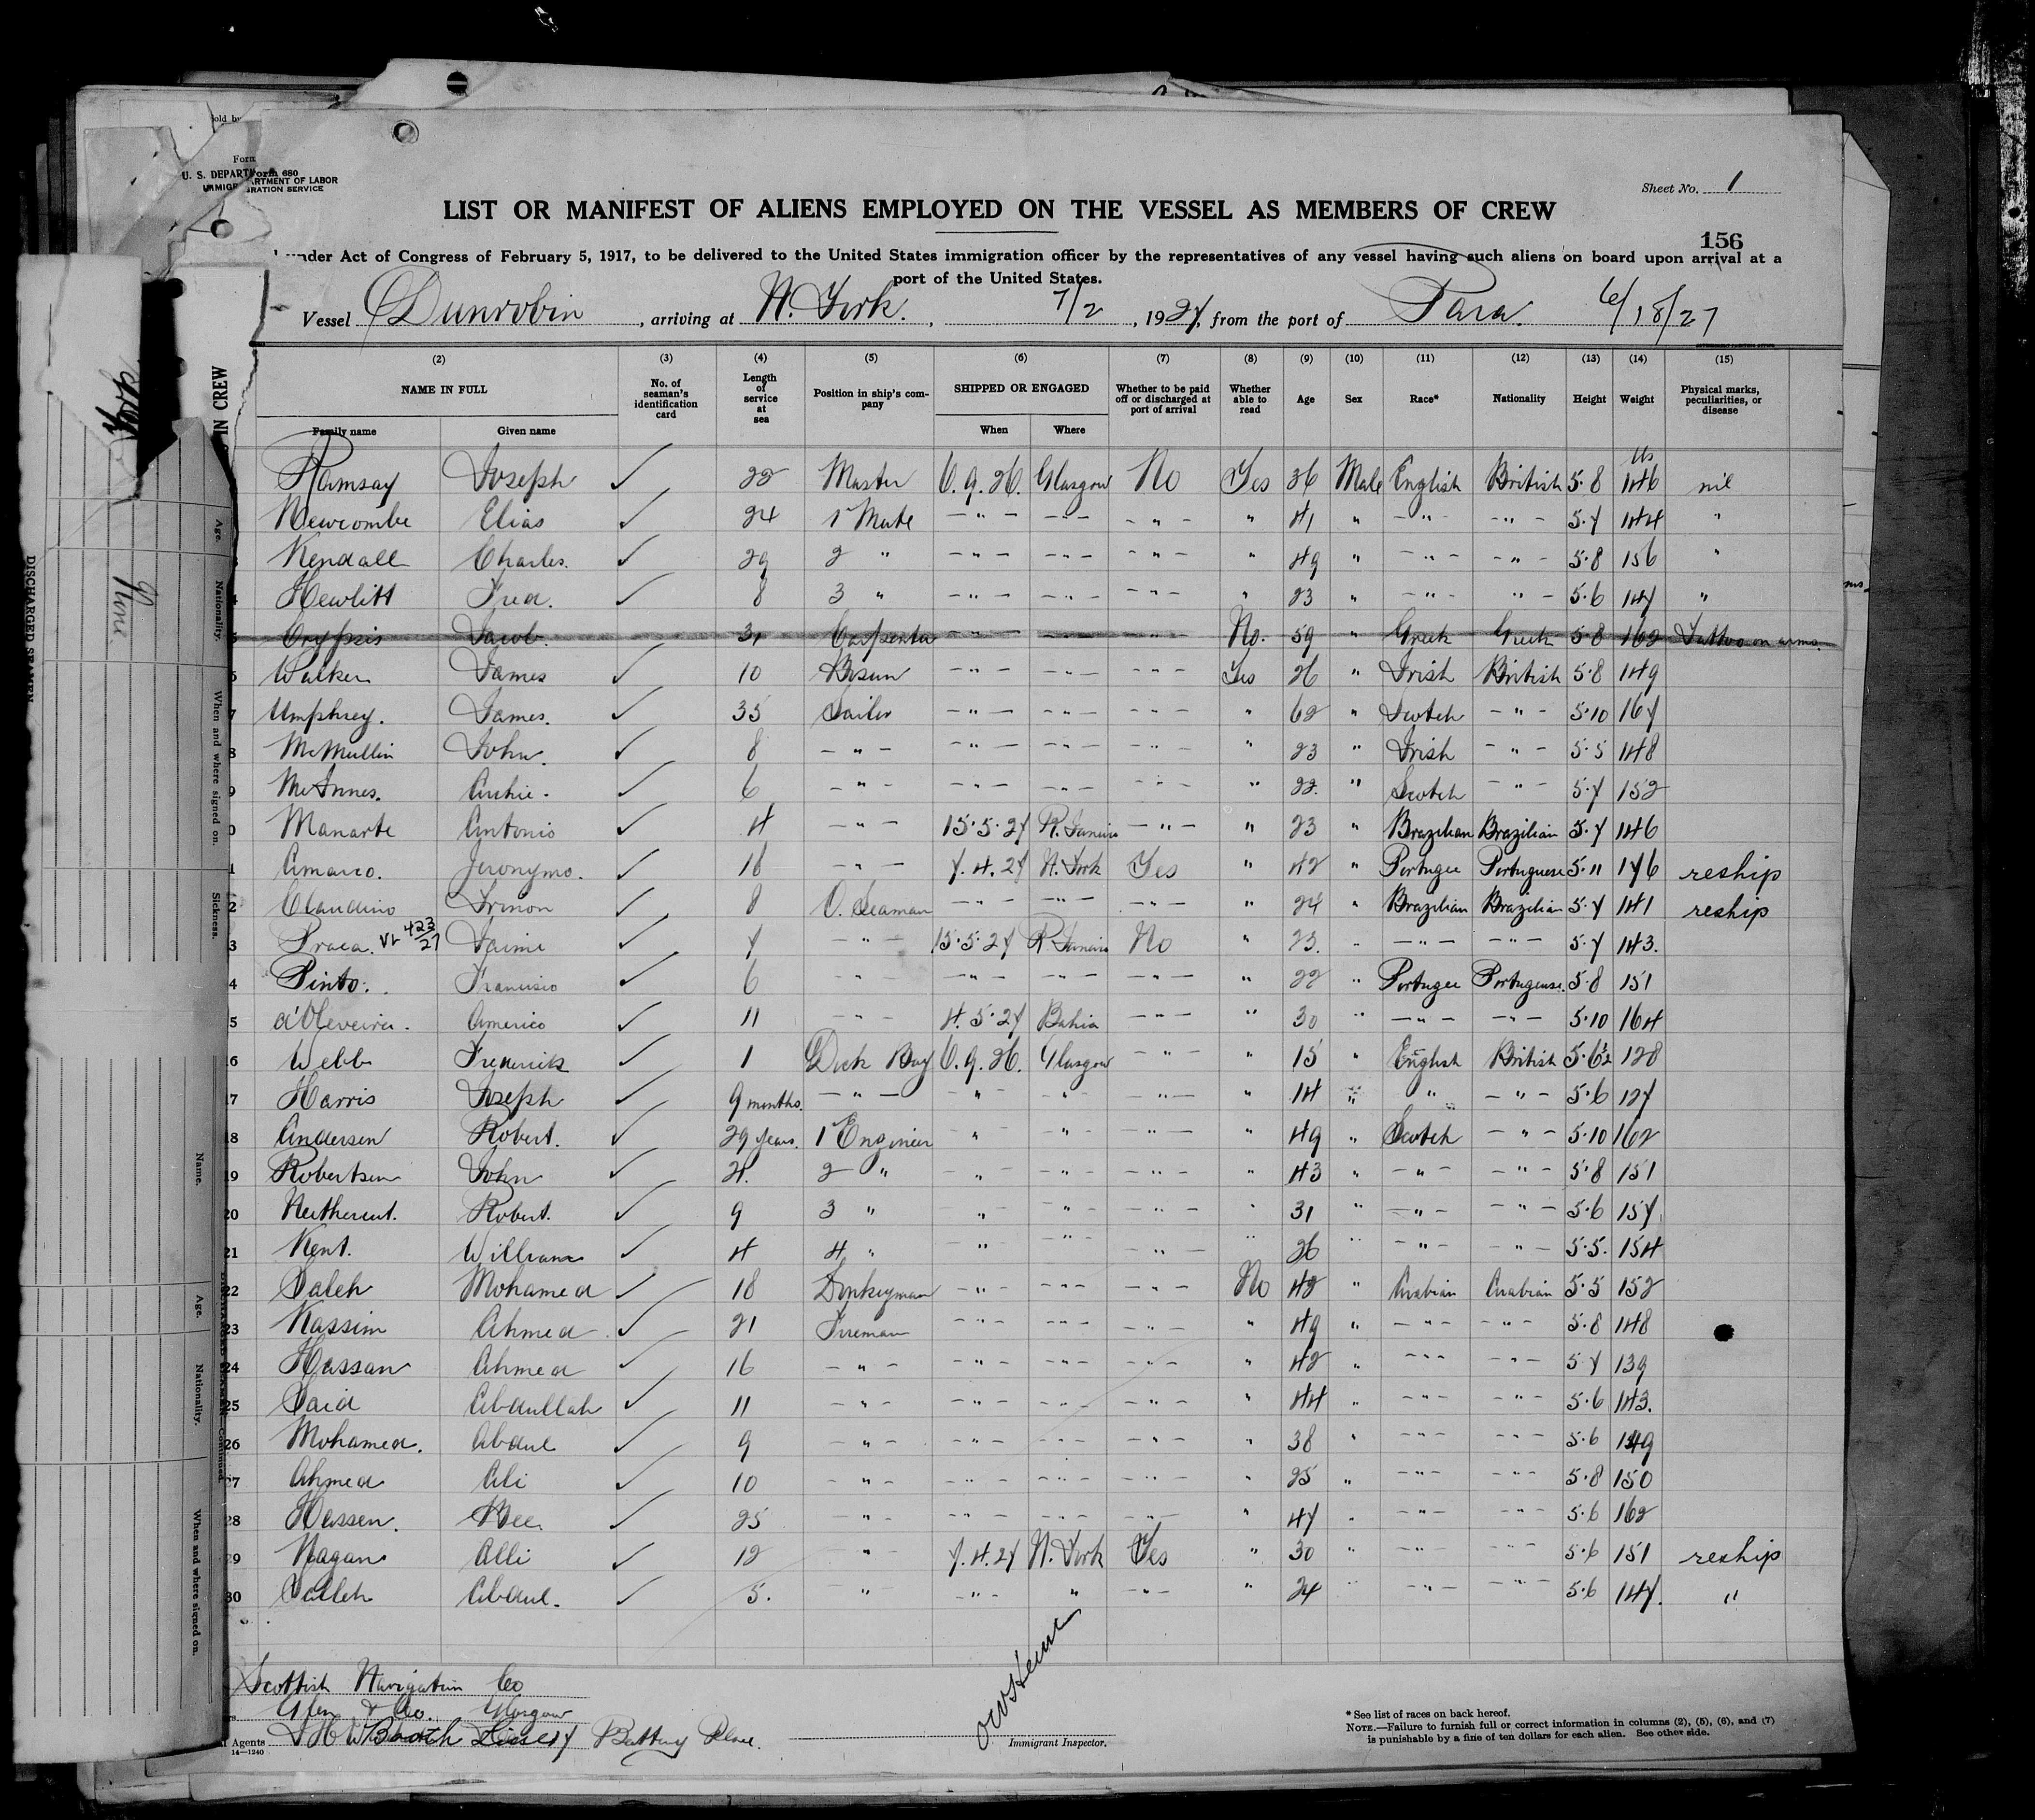 Sheet No. 1
Form 680
U. S. DEPARTMENT OF LABOR
IMMIGRATION SERVICE
LIST OR MANIFEST OF ALIENS EMPLOYED ON THE VESSEL AS MEMBERS OF CREW
156
under Act of Congress of February 5, 1917, to be delivered to the United States immigration officer by the representatives of any vessel having such aliens on board upon arrival at a
port of the United States.
Vessel Dunrobin, arriving at N. York., 7/2, 1927, from the port of Para. 6/18/27
(2) (3) (4) (5) (6) (7) (8) (9) (10) (11) (12) (13) (14) (15)
NAME IN FULL No. of seaman's identification card Length of service at sea Position in ship's company SHIPPED OR ENGAGED Whether to be paid off or discharged at port of arrival Whether able to read Age Sex Race* Nationality Height Weight Physical marks, peculiarities, or disease
Family name Given name When Where
Ramsay Joseph ✓ 22 Master 6.9.26. Glasgow No Yes 36 Male English British 5.8 146 nil
Newcombe Elias ✓ 24 1 Mate -"- -"- -"- " 41 " -"- -"- 5.7 144 "
Kendall Charles. ✓ 29 2 " -"- -"- -"- " 49 " -"- -"- 5.8 156 "
4 Hewlitt Fred. ✓ 8 3 " -"- -"- -"- " 23 " -"- "- 5.6 147 "
5 Jacob. 31 Carpenter -"- -"- No. 59 " Greek Greek 5.8 162 Tattoo on arms.
6 Walker James ✓ 10 Bosun -"- -"- -"- Yes 26 " Irish British 5.8 149
7 Umphrey. James. ✓ 35 Sailor -"- -"- -"- " 62 " Scotch -"- 5.10 167
8 McMullin John. ✓ 8 -"- -"- -"- -"- " 23 " Irish -"- 5.5 148
9 McInnes. Archie. ✓ 6 -"- -"- -"- -"- " 22. " Scotch -"- 5.7 152
0 Manarte Antonio ✓ 4 -"- 15.5.27 R. Janeiro -"- " 23 " Brazilian Brazilian 5.7 146
1 Amaro. Jeronymo. ✓ 16 -"- 7.4.27 N. York Yes " 42 " Portugee Portuguese 5.11 176 reship
2 Claudino ✓ 8 O. Seaman -"- -"- -"- " 24 " Brazilian Brazilian 5.7 141 reship
3 423/27 Jaime ✓ 7 -"- 15.5.27 R. Janeiro No " 23. " -"- -"- 5.7 143.
4 Pinto. Francisco ✓ 6 -"- -"- -"- -"- " 22 " Portugee Portugeuse. 5.8 151
5 d'Oleveira. Americo ✓ 11 -"- 4.5.27 Bahia -"- " 30 " -"- -"- 5.10 164
16 Webb Frederick ✓ 1 Deck Boy 6.9.26. Glasgow -"- " 15 " English British 5.6½ 128
17 Harris Joseph ✓ 9 months. -"- " -"- -"- " 14 " " -"- 5.6 127
18 Andersen Robert. ✓ 29 years. 1 Engineer -"- -"- -"- " 49 " Scotch -"- 5.10 162
19 Robertson John ✓ 21. 2 " " -"- -"- " 43 " -"- -"- 5.8 151
20 Robert. ✓ 9 3 " " -"- -"- " 31 " -"- -"- 5.6 157
21 Kent. William ✓ 4 4 " " -"- -"- " 26 " -"- -"- 5.5. 154
22 Saleh Mohamed ✓ 18 Donkeyman -"- -"- -"- No 42 " Arabian Arabian 5.5 152
23 Kassim Ahmed ✓ 21 Fireman -"- -"- -"- " 49 " -"- -"- 5.8 148
24 Hassan Ahmed ✓ 16 -"- -"- -"- -"- " 42 " -"- -"- 5.7 139
25 Said Abdullah ✓ 11 -"- -"- -"- -"- " 44 " -"- -"- 5.6 143.
26 Mohamed. Abdul ✓ 9 -"- -"- -"- -"- " 38 " -"- -"- 5.6 149
27 Ahmed Ali ✓ 10 -"- -"- -"- -"- " 25 " -"- -"- 5.8 150
28 Hassen. ✓ 25 -"- -"- -"- -"- " 47 " -"- -"- 5.6 162
29 Nagan Alli ✓ 12 -"- 7.4.27 N. York Yes " 30 " -"- -"- 5.6 151 reship
30 Salleh Abdul. ✓ 5. " -"- " -"- " 24 " -"- -"- 5.6 147. "
Scottish Navigation Co
Glen & Co. Glasgow
Agents Battery Place.
14—1240
Immigrant Inspector.
* See list of races on back hereof.
NOTE.—Failure to furnish full or correct information in columns (2), (5), (6), and (7)
is punishable by a fine of ten dollars for each alien. See other side.
IN CREW
DISCHARGED SEAMEN
Age.
Nationality.
When and where signed on.
Sickness.
Name.
Age.
Nationality.
When and where signed on.